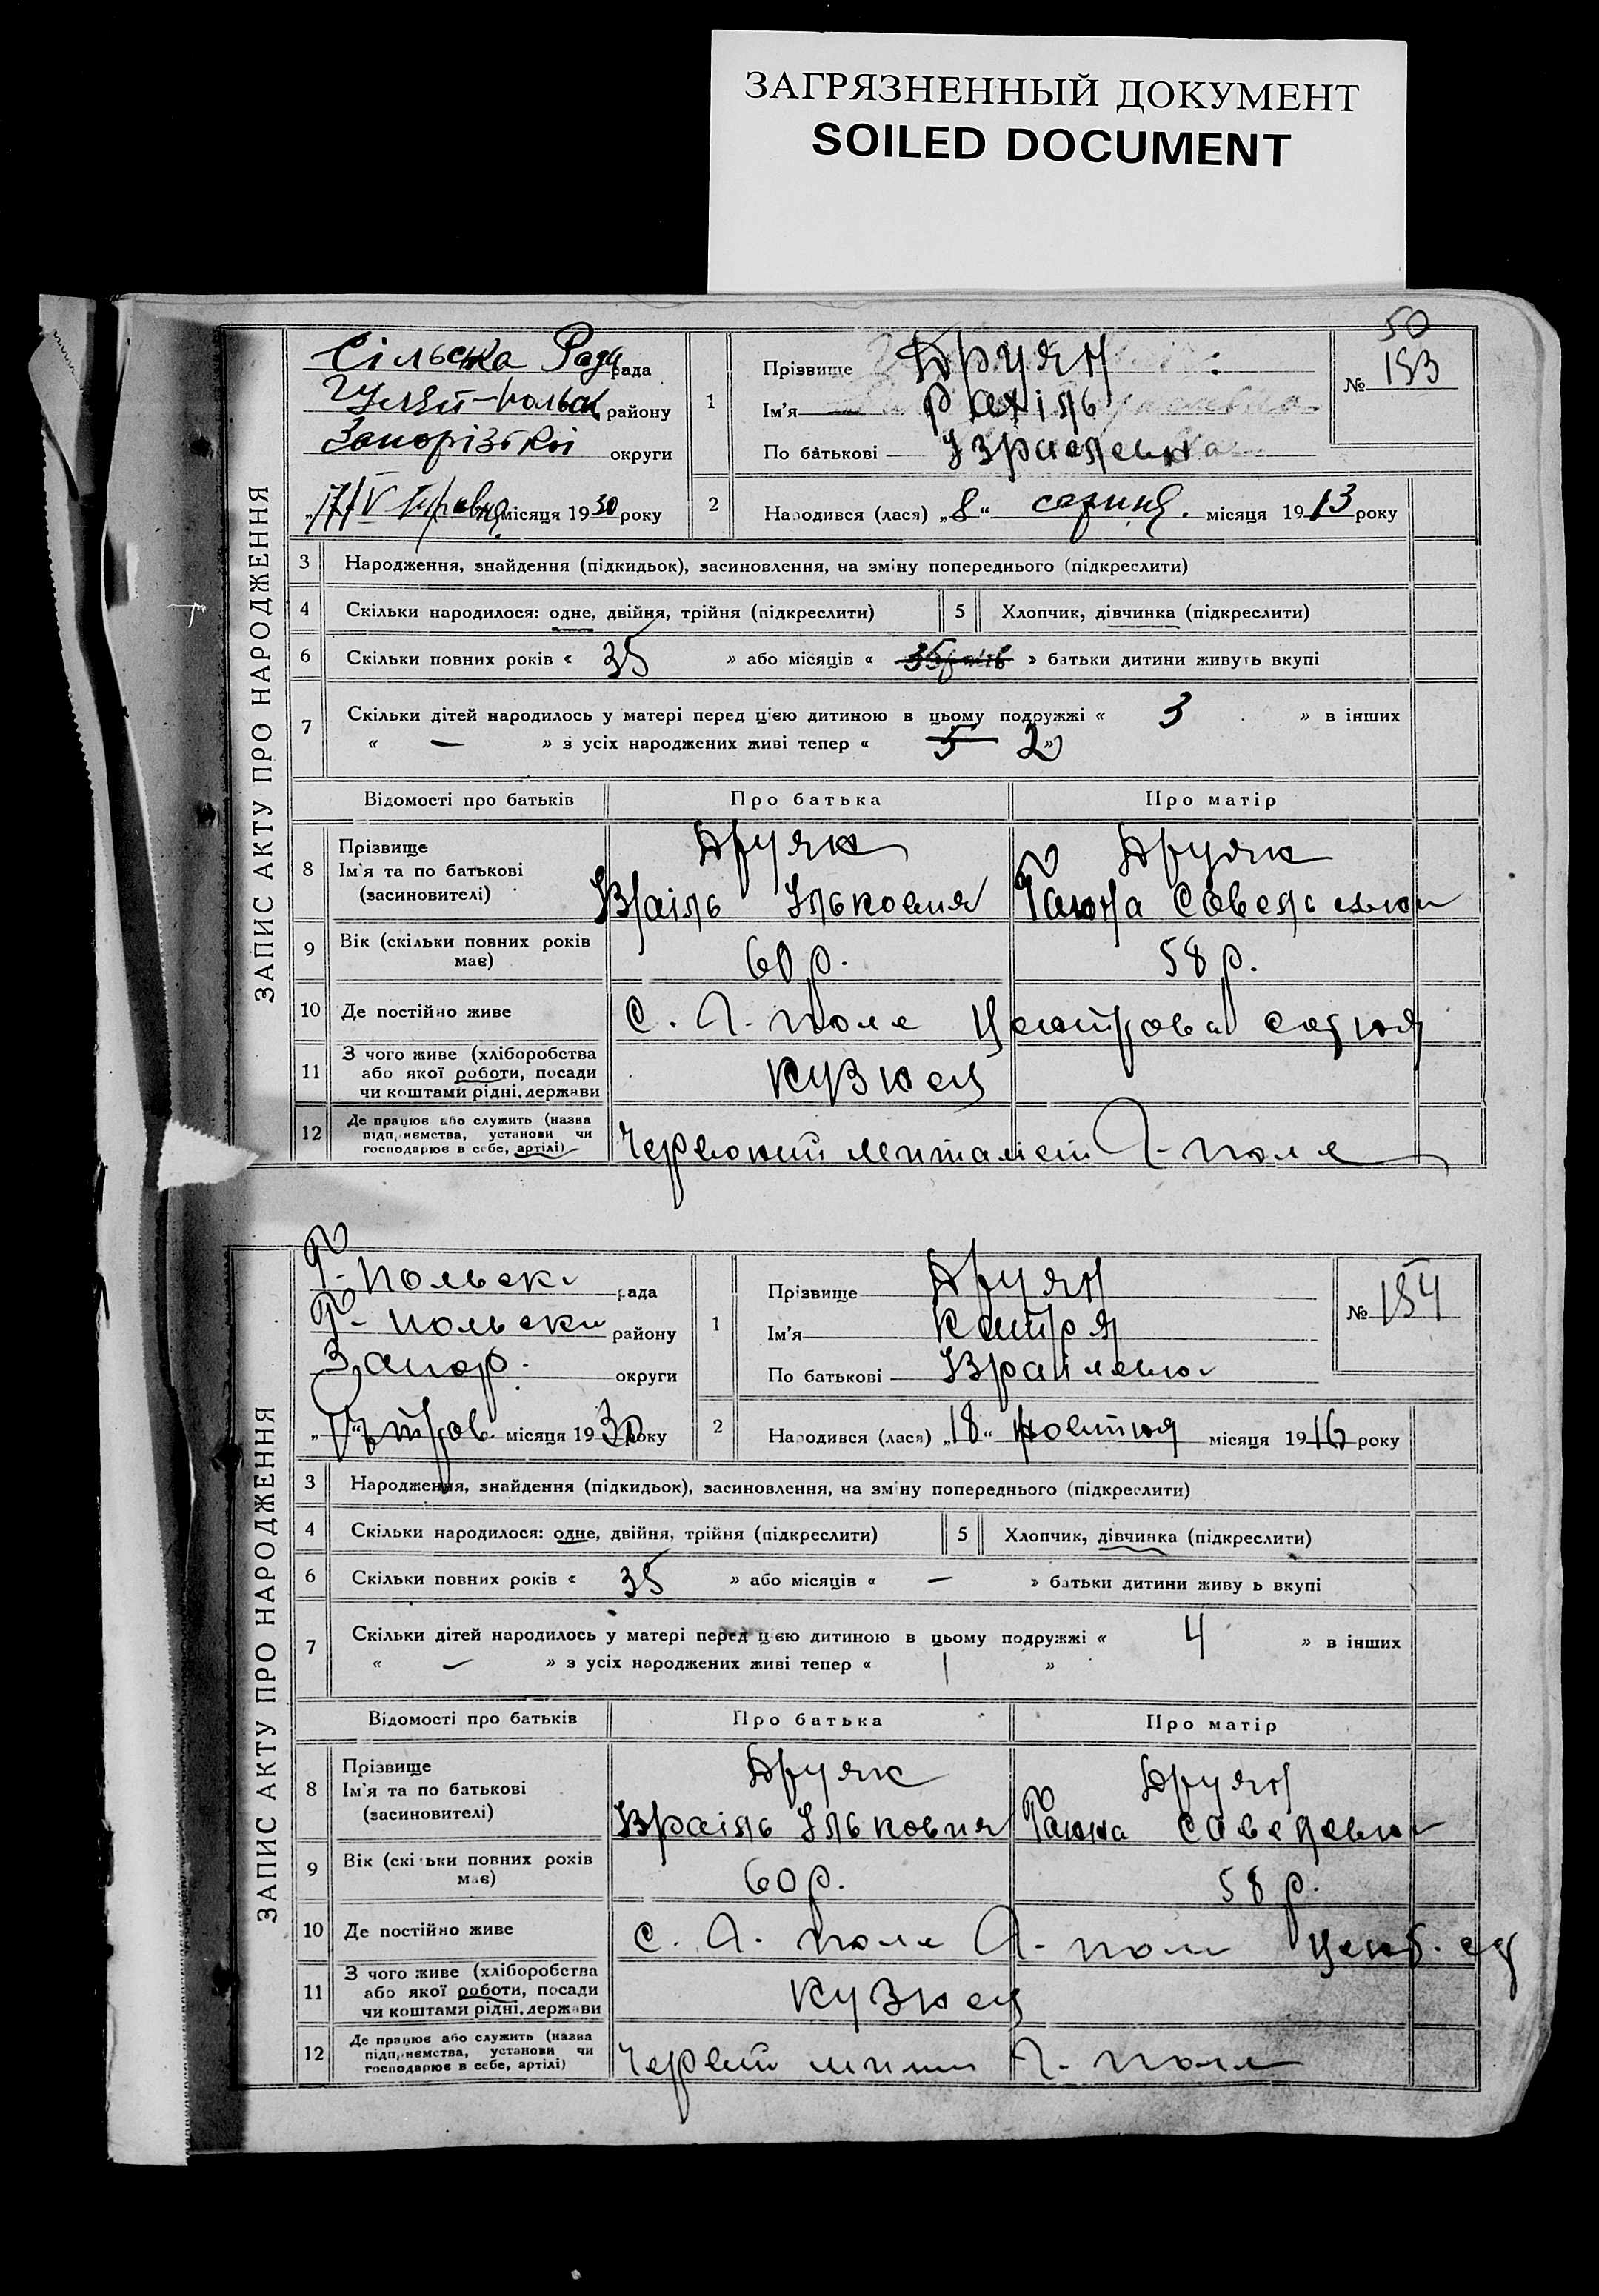 ЗАГРЯЗНЕННЫЙ ДОКУМЕНТ
SOILED DOCUMENT
50
ЗАПИС АКТУ ПРО НАРОДЖЕННЯ
Сільська Рада рада
Гуляй-Польськ району
Запорізької округи
місяця 1930 року
1
Прізвище Друян
Ім'я Рахіль
По батькові
№ 153
2
Народився (лася) „8“ серпня місяця 1913 року
3 Народження, знайдення (підкидьок), засиновлення, на зміну попереднього (підкреслити)
4 Скільки народилося: одне, двійня, трійня (підкреслити) 5 Хлопчик, дівчинка (підкреслити)
6 Скільки повних років « 35 » або місяців « 35 років » батьки дитини живуть вкупі
7 Скільки дітей народилось у матері перед цією дитиною в цьому подружжі « 3 » в інших
« — » з усіх народжених живі тепер « 5 2 »
Відомості про батьків Про батька Про матір
8 Прізвище
Ім'я та по батькові
(засиновителі)
Друян Друян
Ізраіль Ількович Ганна Савельевна
9 Вік (скільки повних років має) 60 р. 58 р.
10 Де постійно живе С. Г. поле Центрова сотня
11 З чого живе (хліборобства
або якої роботи, посади
чи коштами рідні, держави
Кузнец
12 Де працює або служить (назва
підприємства, установи чи
господарює в себе, артілі)
Червоний металіст Г-поле
ЗАПИС АКТУ ПРО НАРОДЖЕННЯ
Г-Польськ рада
Г-Польськ району
Запор. округи
місяця 1930 року
1
Прізвище Друян
Ім'я Катря
По батькові Ізраілевна
№ 154
2
Народився (лася) „18“ жовтня місяця 1916 року
3 Народження, знайдення (підкидьок), засиновлення, на зміну попереднього (підкреслити)
4 Скільки народилося: одне, двійня, трійня (підкреслити) 5 Хлопчик, дівчинка (підкреслити)
6 Скільки повних років « 35 » або місяців « — » батьки дитини живу ь вкупі
7 Скільки дітей народилось у матері перед цією дитиною в цьому подружжі « 4 » в інших
« — » з усіх народжених живі тепер « 1 »
Відомості про батьків Про батька Про матір
8 Прізвище
Ім'я та по батькові
(засиновителі)
Друян Друян
Ізраіль Ількович Ганна Савелевна
9 Вік (скільки повних років має) 60 р. 58 р.
10 Де постійно живе С. Г. поле Г. поле
11 З чого живе (хліборобства
або якої роботи, посади
чи коштами рідні, держави
Кузнец
12 Де працює або служить (назва
підприємства, установи чи
господарює в себе, артілі)
Г. поле